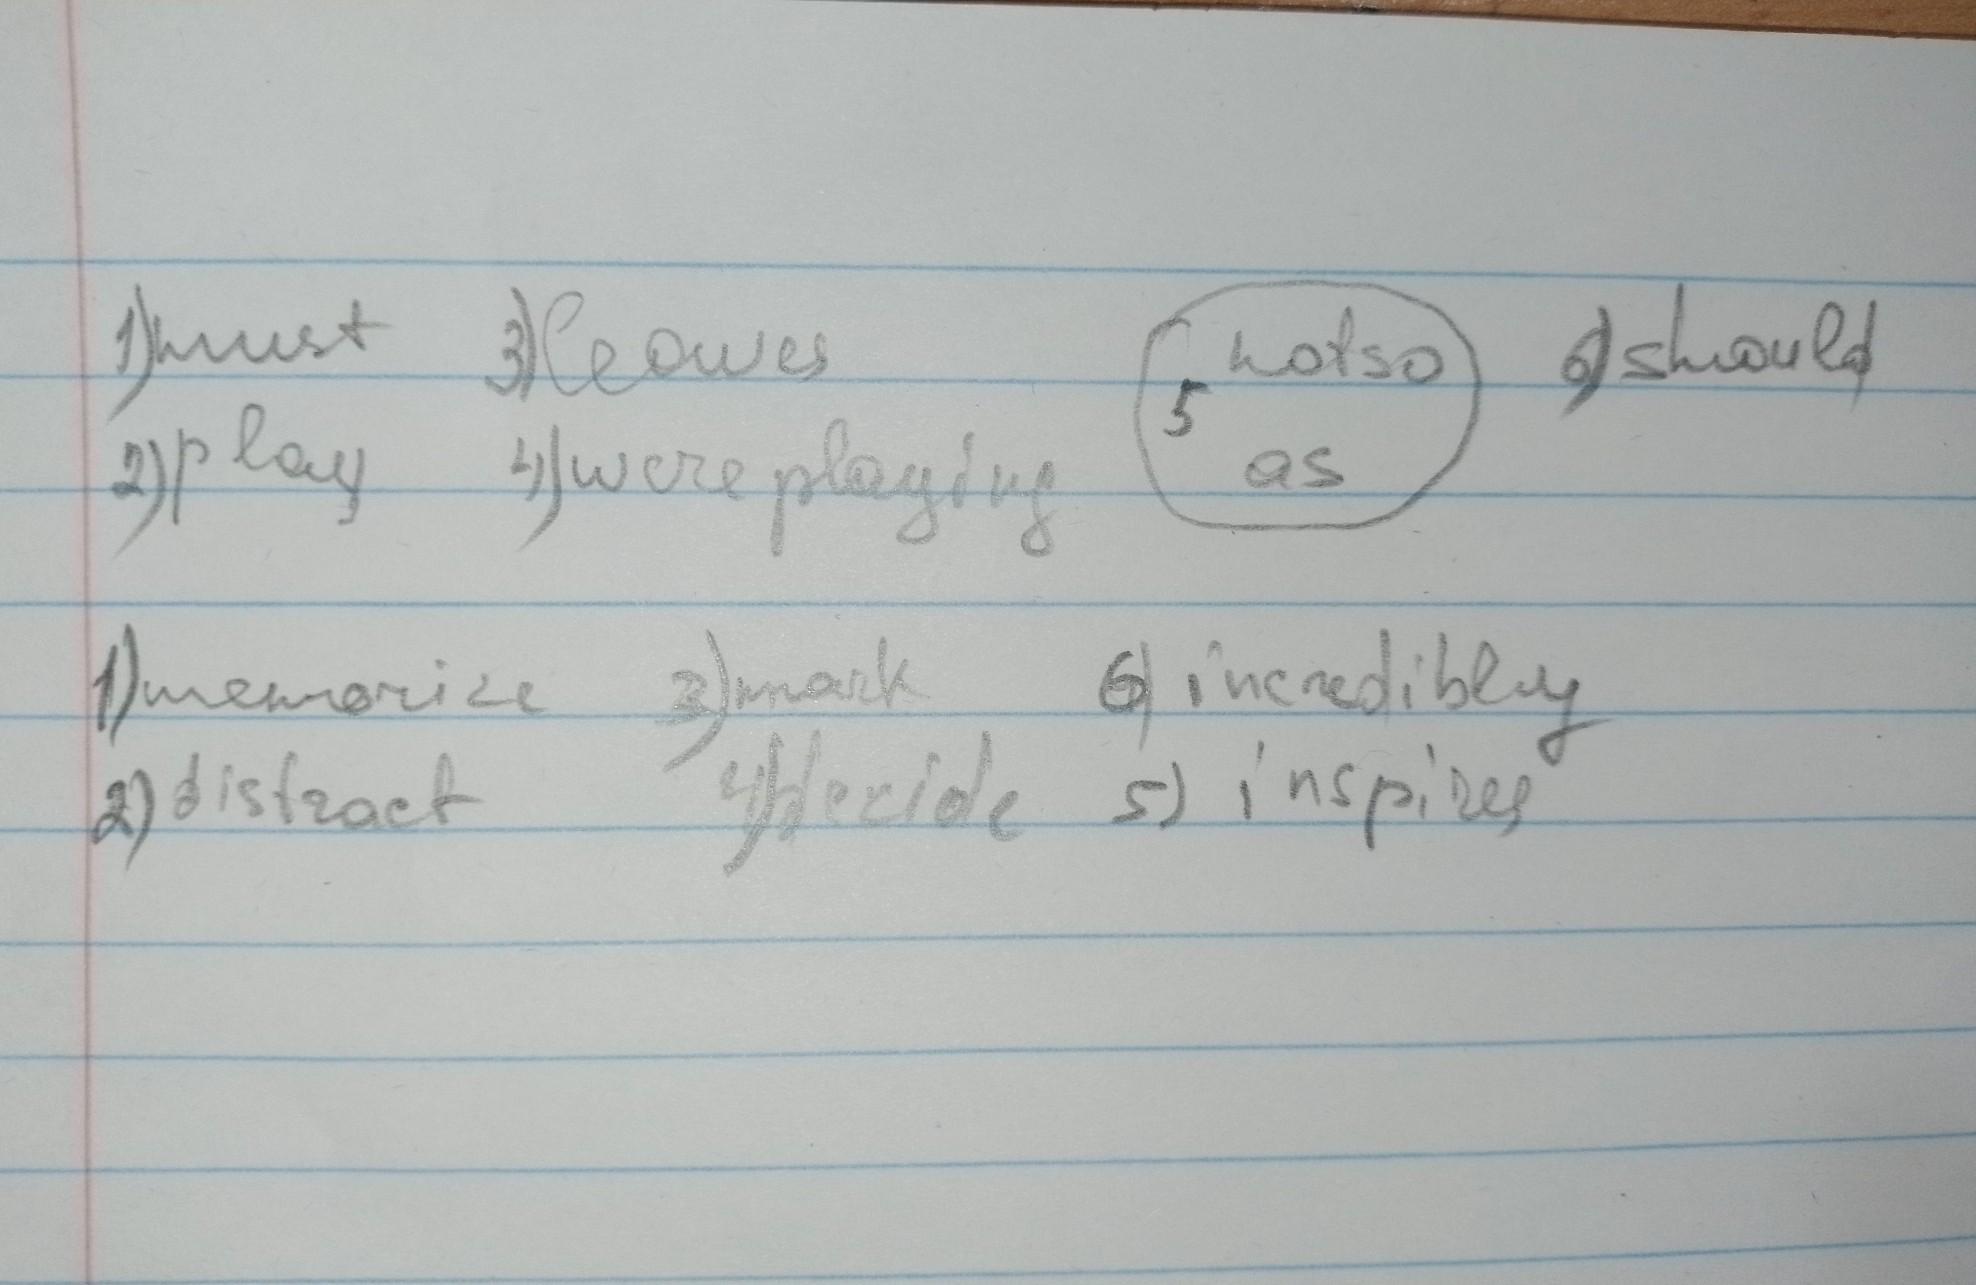 1) must 3) leowes not so 6) should
5
2) play 4) were playing as
1) memorize 3) mark 6) incredibly
2) distract 4) decide 5) inspires